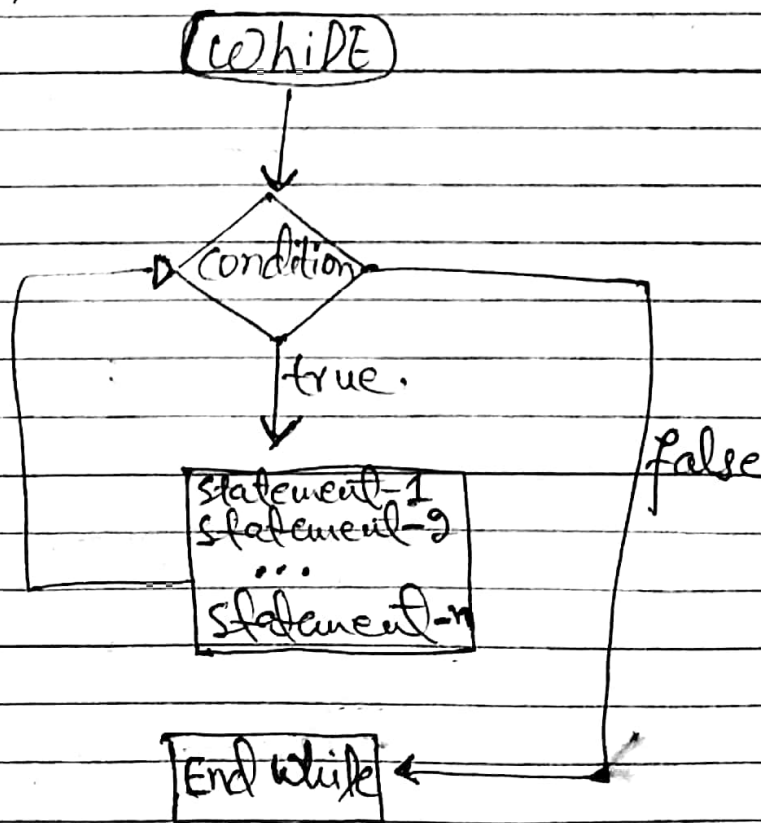 WhiLE
condition
true.
false
statement-1
statement-2
...
statement-n
End while